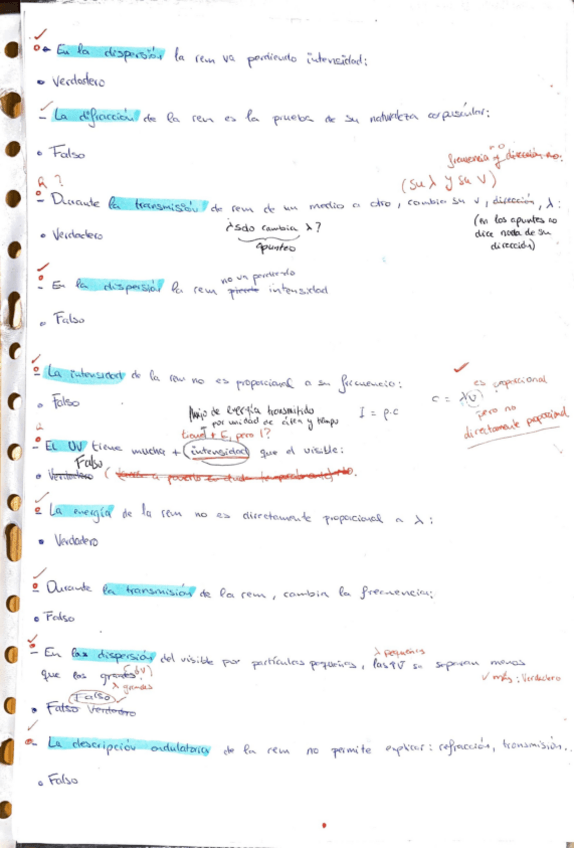 - En la dispersión la rem va perdiendo intensidad:
• Verdadero
- La difracción de la rem es la prueba de su naturaleza corpuscular:
• Falso
frecuencia y dirección no.
(su λ y su v)
?
- Durante la transmisión de rem de un medio a otro, cambia su v, dirección, λ:
• Verdadero
¿sólo cambia λ?
apuntes
(en los apuntes no
dice nada de su
dirección)
no va perdiendo
- En la dispersión la rem pierde intensidad
• Falso
- La intensidad de la rem no es proporcional a su frecuencia:
• Falso
c = λν
es proporcional
pero no
directamente proporcional
flujo de energía transmitido
por unidad de área y tiempo
I = ρ.c
tienen + E, pero I?
- El UV tiene mucha + intensidad que el visible:
Falso
• Verdadero
- La energía de la rem no es directamente proporcional a λ:
• Verdadero
- Durante la transmisión de la rem, cambia la frecuencia:
• Falso
λ pequeñas
- En las dispersión del visible por partículas pequeñas, las ↑V se separan menos
que las grandes: (↓V)
λ grandes
✓ más: Verdadero
Falso
• Falso Verdadero
- La descripción ondulatoria de la rem no permite explicar: refracción, transmisión..
• Falso